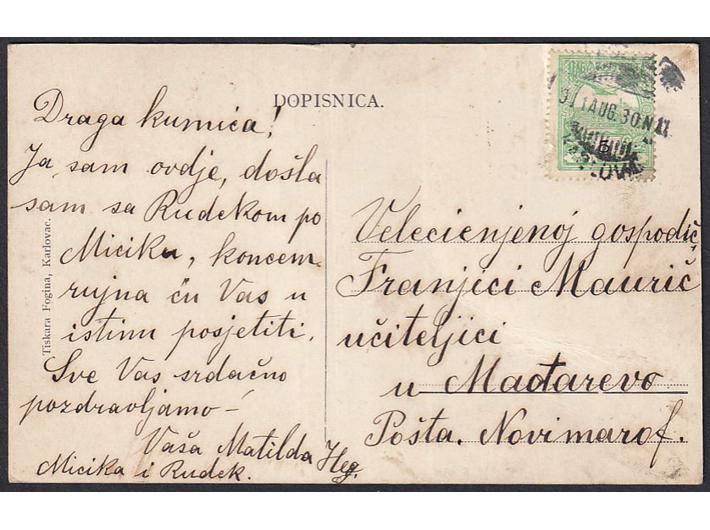 DOPISNICA.
Draga kumica!
Ja sam ovdje, došla
sam sa Rudekom po
Miciku, koncem
rujna ću Vas u
istim posjetiti.
Sve Vas srdačno
pozdravljamo-
Vaša Matilda Heg.
Micika i Rudek.
Tiskara Fogina, Karlovac.
AUG. 30. N
Velecienjenoj gospodič.
Franjici Maurič
učiteljici
u Mađarevo
Pošta. Novimarof.